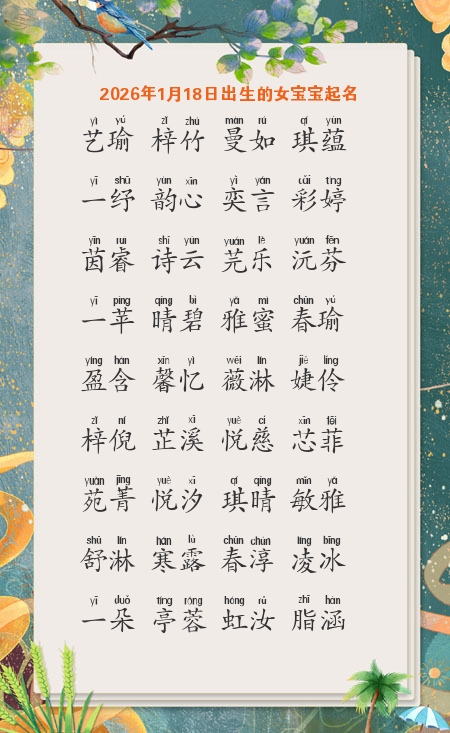 2026年1月18日出生的女宝宝起名
yì yú zǐ zhú màn rú qí yùn
艺瑜 梓竹 曼如 琪蕴
yī shū yùn xīn yì yán cǎi tíng
一纾 韵心 奕言 彩婷
yīn ruì shī yún yuán lè yuán fēn
茵睿 诗云 芫乐 沅芬
yī píng qíng bì yǎ mì chūn yú
一苹 晴碧 雅蜜 春瑜
yíng hán xīn yì wēi lín jié líng
盈含 馨忆 薇淋 婕伶
zǐ ní zhǐ xī yuè cí xīn fēi
梓倪 芷溪 悦慈 芯菲
yuàn jīng yuè xī qí qíng mǐn yǎ
苑菁 悦汐 琪晴 敏雅
shū lín hán lù chūn chún líng bīng
舒淋 寒露 春淳 凌冰
yī duǒ tíng róng hóng rǔ zhī hán
一朵 亭蓉 虹汝 脂涵